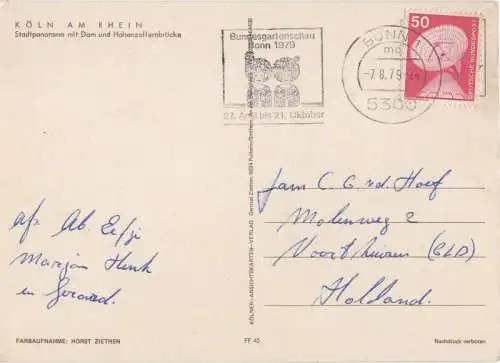 KÖLN AM RHEIN
Stadtpanorama mit Dom und Hohenzollernbrücke
Bundesgartenschau
Bonn 1979
27. April bis 21. Oktober
BONN 1
mg
-7.8.79
5300
50
DEUTSCHE BUNDESPOST
Fam C. G. v.d. Hoef
Molenweg 2
Voorthuizen (GLD)
Holland.
afz. Ab. Eefje
Marjan Henk
en Gerard.
KÖLNER-ANSICHTSKARTEN-VERLAG
FARBAUFNAHME: HORST ZIETHEN
FF 45
Nachdruck verboten